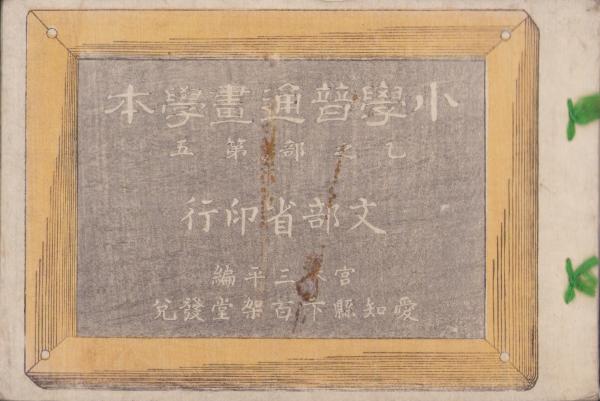 小學普通畫學本
乙之部第五
文部省印行
宮本三平編
愛知縣下百架堂發兌